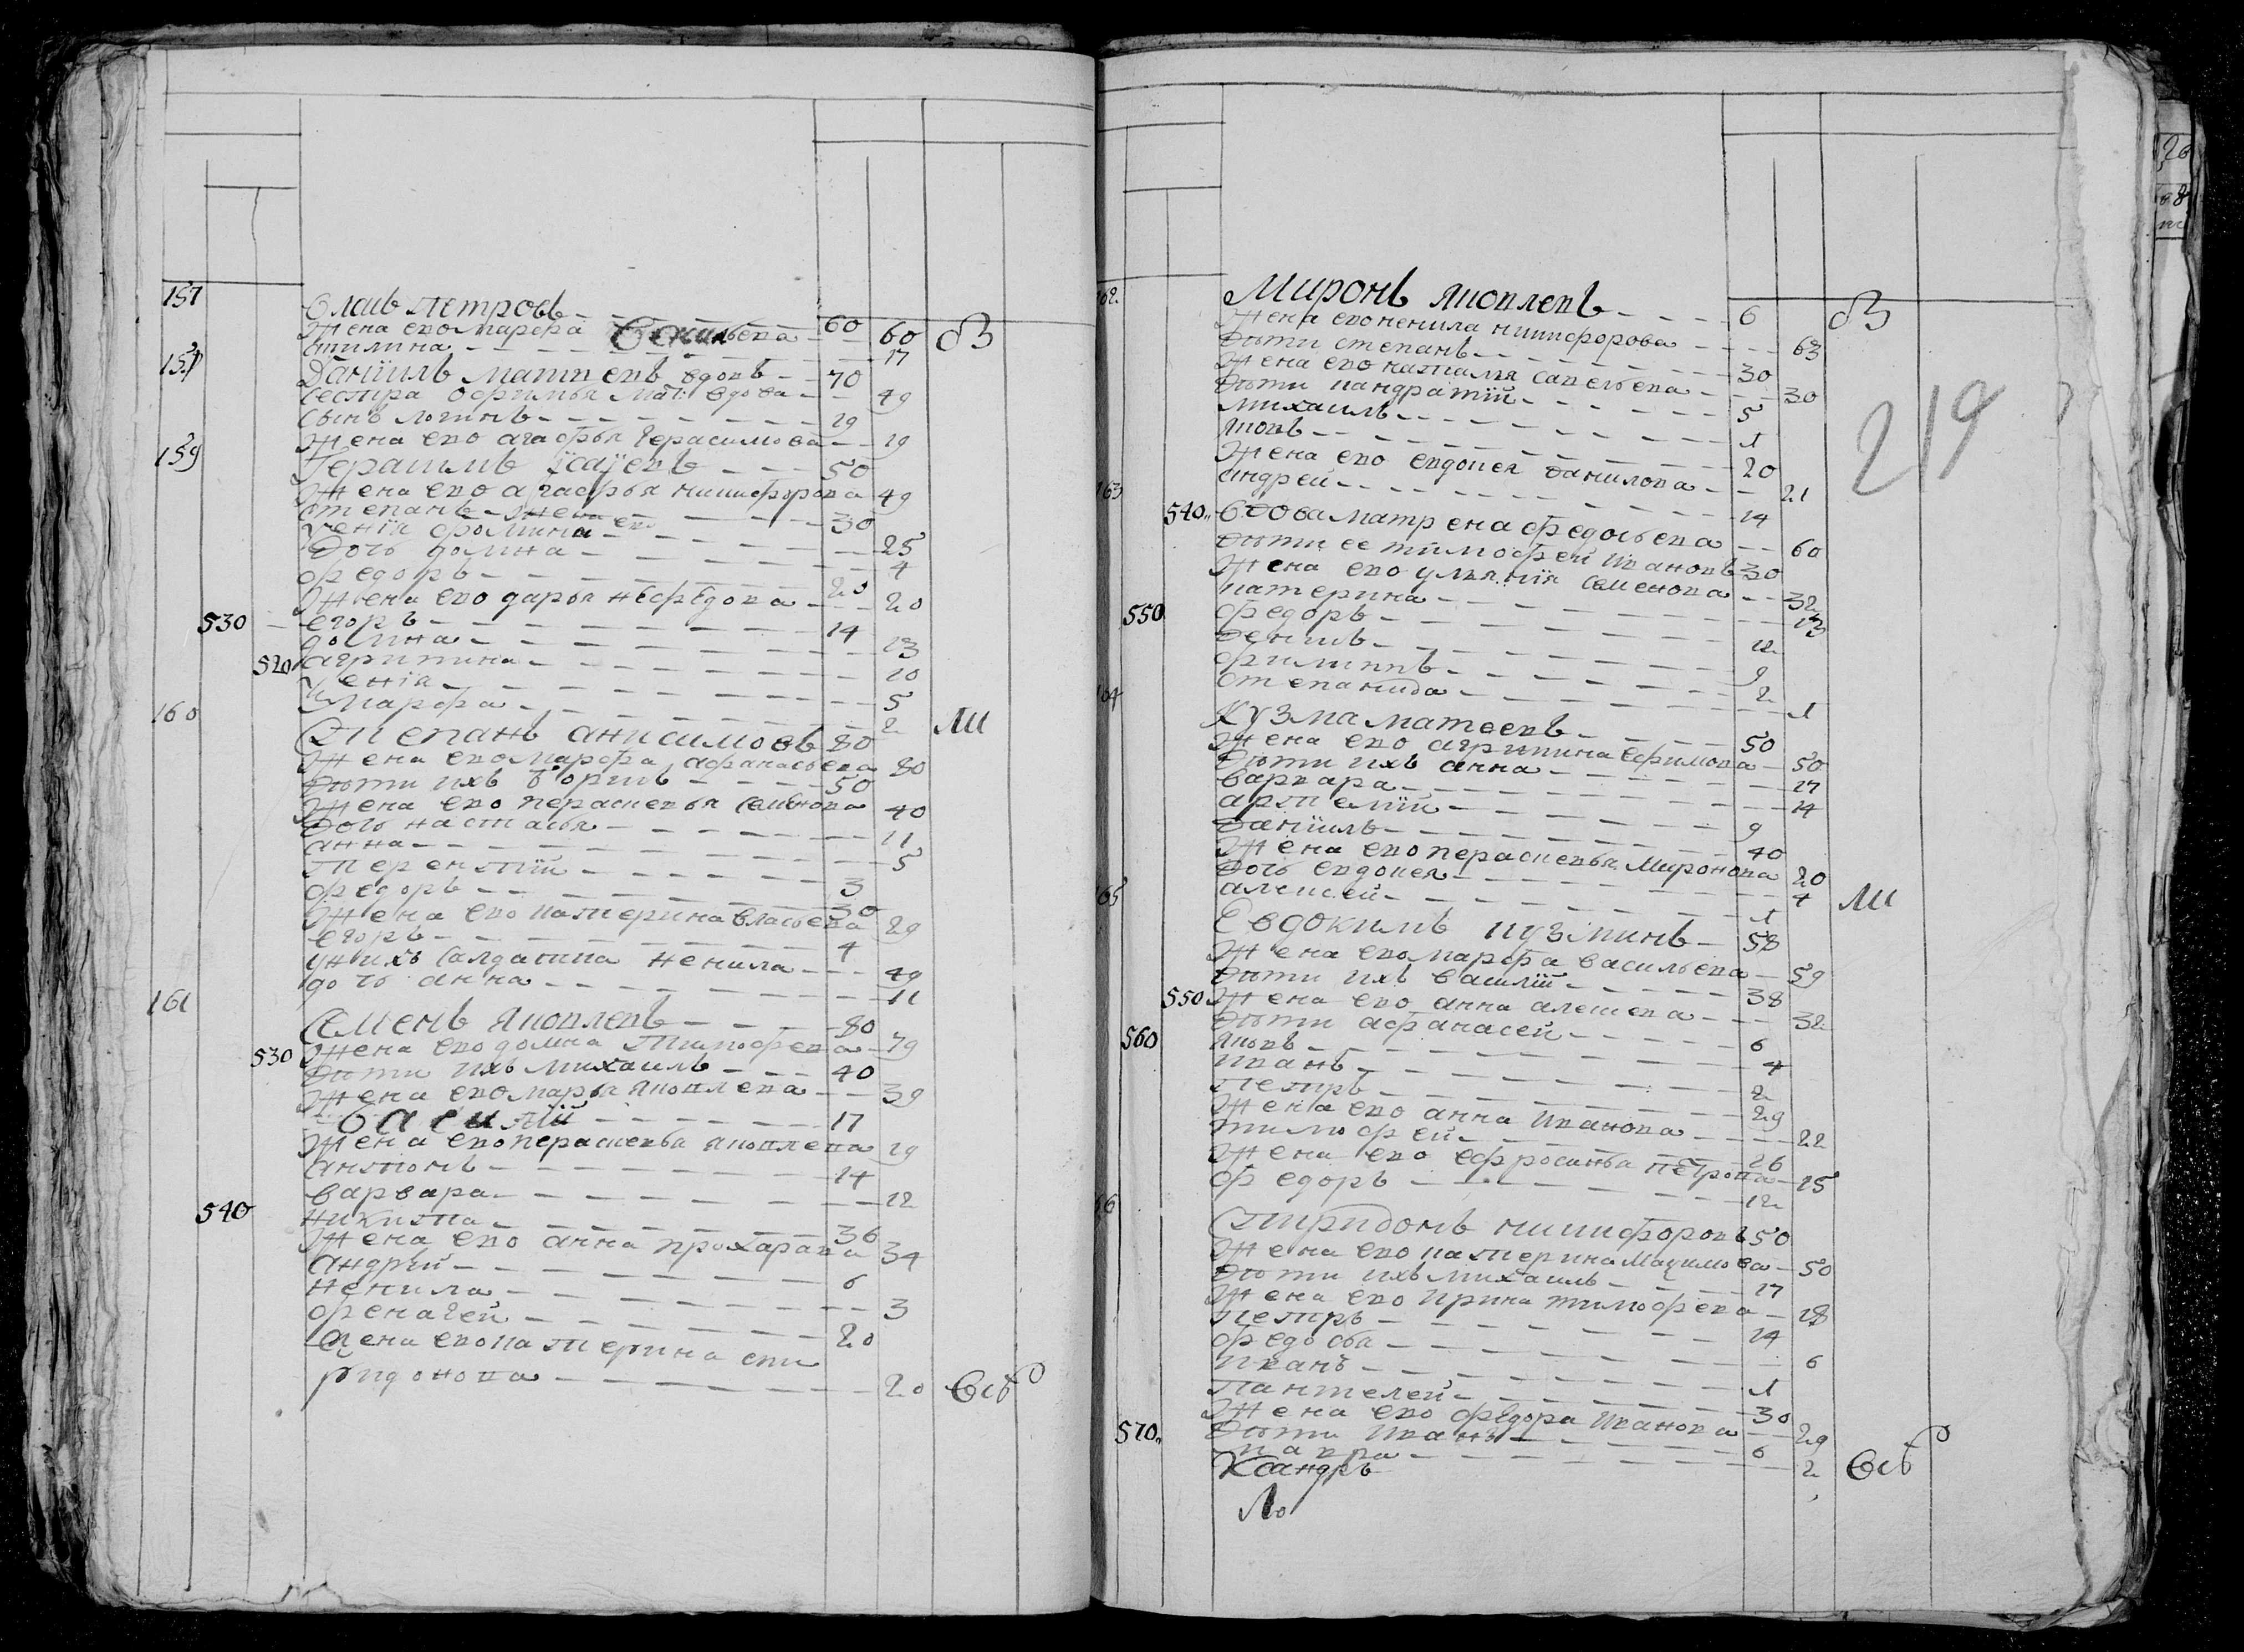 157
Власъ петровъ 60
Жена ево марфа Васильева 60 ВЗ
акилина 17
158
Даніилъ матвеевъ вдовъ 70
Сестра офимья мат: вдова 49
Сынъ логинъ 29
Жена ево агафья Герасимова 29
159
Герасимъ ісаџевъ 50
Жена ево агафья никифорова 49
степанъ 30 жена ево
ѯенія фомина 25
дочь домна 4
федоръ 20
Жена ево дарья нефедова 20
530 егоръ 14
домна 13
520 агрипина 10
ѯенія 5
Марфа 2
160 ЛИ
Степанъ анисимовъ 80
Жена ево марфа афанасьева 80
дѣти ихъ борисъ 50
Жена ево перасковья семенова 40
дочь настасья 11
анна 5
Терентій 3
федоръ 30
Жена ево катерина власьева 29
егоръ 4
у нихъ салдатка ненила 49
дочь анна 11
161
Семенъ яковлевъ 80
530 Жена ево домна Тимофева 79
дѣти ихъ михаилъ 40
Жена ево марья яковлева 39
василій 17
Жена ево перасковья яковлева 19
антонъ 14
варвара 12
540 никита 36
Жена ево анна прохарова 34
андрѣй 6
ненила 3
фенагей 20
жена ево катерина спи
ридонова 20 Ев
162
Миронъ яковлевъ 6 ВЗ
Жена ево ненила никифорова 63
дѣти степанъ 30
Жена ево наталья савельева 30
дѣти кандратій 5
михаилъ 1
яковъ 20
Жена ево евдокея данилова 21
андрей 14
163
540 вдова матрена федосьева 60
дѣти ее тимофей ивановъ 30
Жена ево ульянія семенова 32
катерина 13
550 федоръ 12
денисъ 9
филиппъ 2
степанида 1
164
Кузма матвеевъ 50
Жена ево агрипина ефимова 50
дѣти ихъ анна 17
варвара 14
артемій 9
даніилъ 40
Жена ево перасковья Миронова 20
дочь евдокея 4 ЛИ
алексей 1
165
Евдокимъ кузминъ 58
Жена ево марфа васильева 59
дѣти ихъ василій 38
550 Жена ево анна алексева 32
дѣти афанасей 6
560 яковъ 4
иванъ 2
Петръ 29
Жена ево анна иванова 22
тимофей 26
Жена ево ефросинья петрова 25
федоръ 12
166
Спиридонъ никифоровъ 50
Жена ево катерина маѯимова 50
дѣти ихъ михаилъ 17
Жена ево ирина тимофева 18
Петръ 14
федосья 6
иванъ 1
пантелей 30
Жена ево федора иванова 29
570 дѣти иванъ 6
мавра 2 Ев
Кандръ
Ло
219